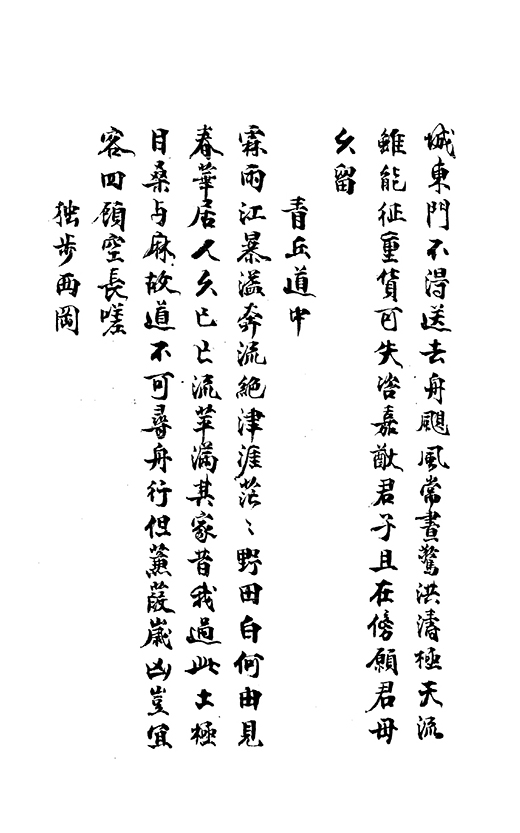 城東門不得送去舟颶風常晝驚洪濤極天流
雖能征重貨可失咨嘉猷君子且在傍願君毋
久留
青丘道中
霖雨江暴溢奔流絕津涯茫〻野田白何由見
春華居人久已亡流萍滿其家昔我過此土極
目桑与麻故道不可尋舟行但蒹葭歲凶豈宜
客四顧空長嗟
独步西岡